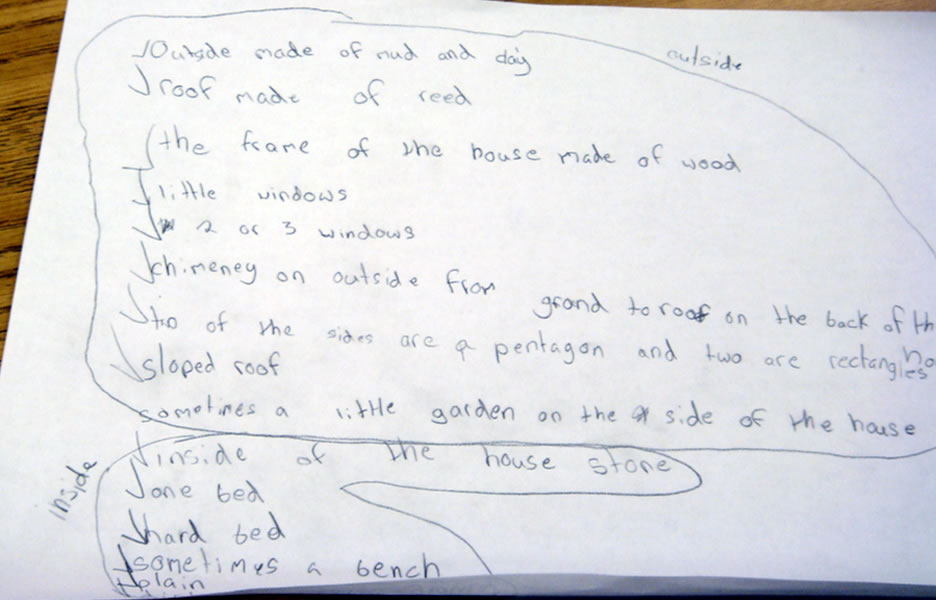 outside
Outside made of mud and clay
roof made of reed
the frame of the house made of wood
little windows
2 or 3 windows
chimeney on outside from grond to roof on the back of th
ho
two of the sides are a pentagon and two are rectangles
sloped roof
sometimes a little garden on the side of the house
inside
inside of the house stone
one bed
hard bed
sometimes a bench
plain